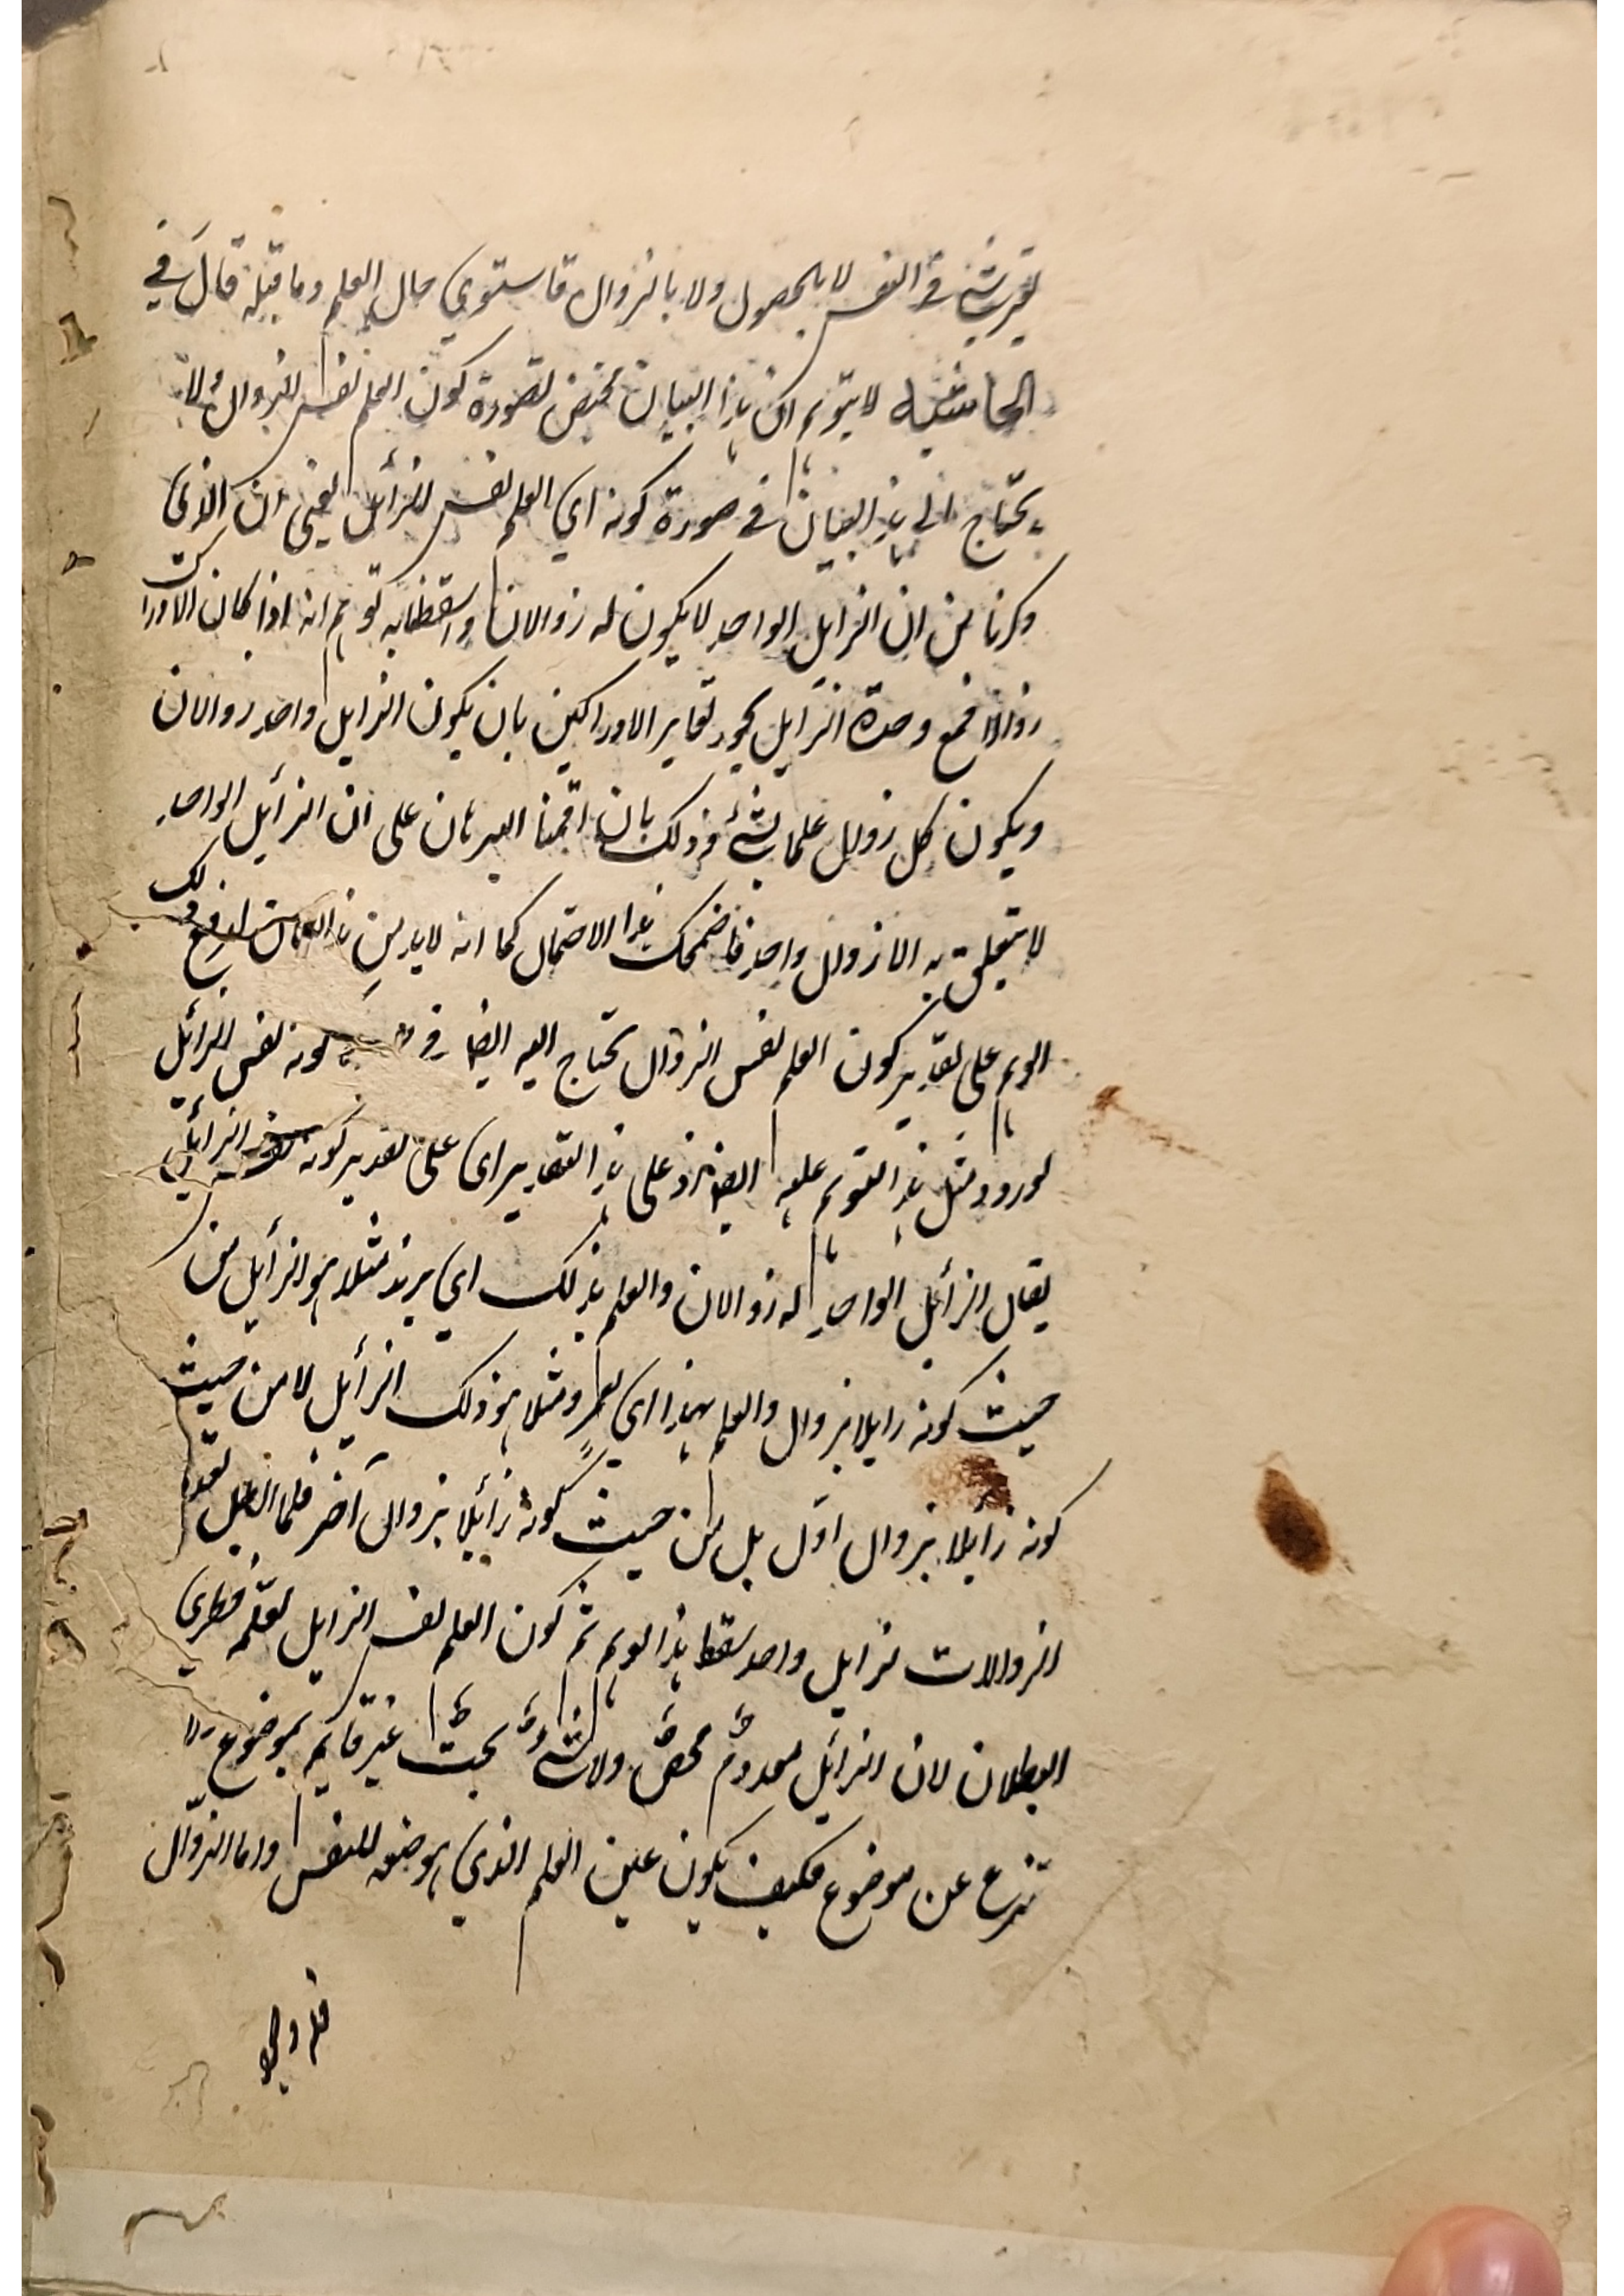 شئ في النفس لا بالحصول ولا بالزوال فاستوي حال العلم وما قبله قال في
الحاشيه لا يتوهم ان هذا البيان مختص بصورة كون العلم نفس الزوال ولا
يحتاج الى هذا البيان في صورة كونه اي العلم نفس الزائل يعني ان الذي
ذكرنا من ان الزايل الواحد لا يكون له زوالان واسقطنا به توهم انه اذا كان الادراك
زوالا فمع وحدة الزايل يجوز تغاير الادراكين بان يكون الزايل واحد زوالان
ويكون كل زوال علما بشئ وذلك بان اقمنا البرهان على ان الزائل الواحد
لا يتعلق به الا زوال واحد فاضمحل هذا الاحتمال كما انه لا بد من هذا البيان لدفع ذلك
الوهم على تقدير كون العلم نفس الزوال يحتاج اليه ايضا في كونه نفس الزائل
لورود مثل هذا التوهم عليه ايضا اذ على هذا التقدير اى على تقدير كونه نفس الزائل
يقال الزائل الواحد له زوالان والعلم بذلك اي بزيد مثلا هو الزائل من
حيث كونه زايلا بزوال والعلم بهذا اى بعمرو مثلا هو ذلك الزائل لا من حيث
كونه زايلا بزوال اول بل من حيث كونه زائلا بزوال آخر فلما ابطل تعدد
الزوالات لزايل واحد سقط هذا الوهم ثم كون العلم نفس الزايل لعله فطرى
البطلان لان الزائل معدوم محض ولا شئ بحت غير قايم بموضوع ولا
منتزع عن موضوع فكيف يكون عين العلم الذي هو صفة للنفس واما الزوال
فله